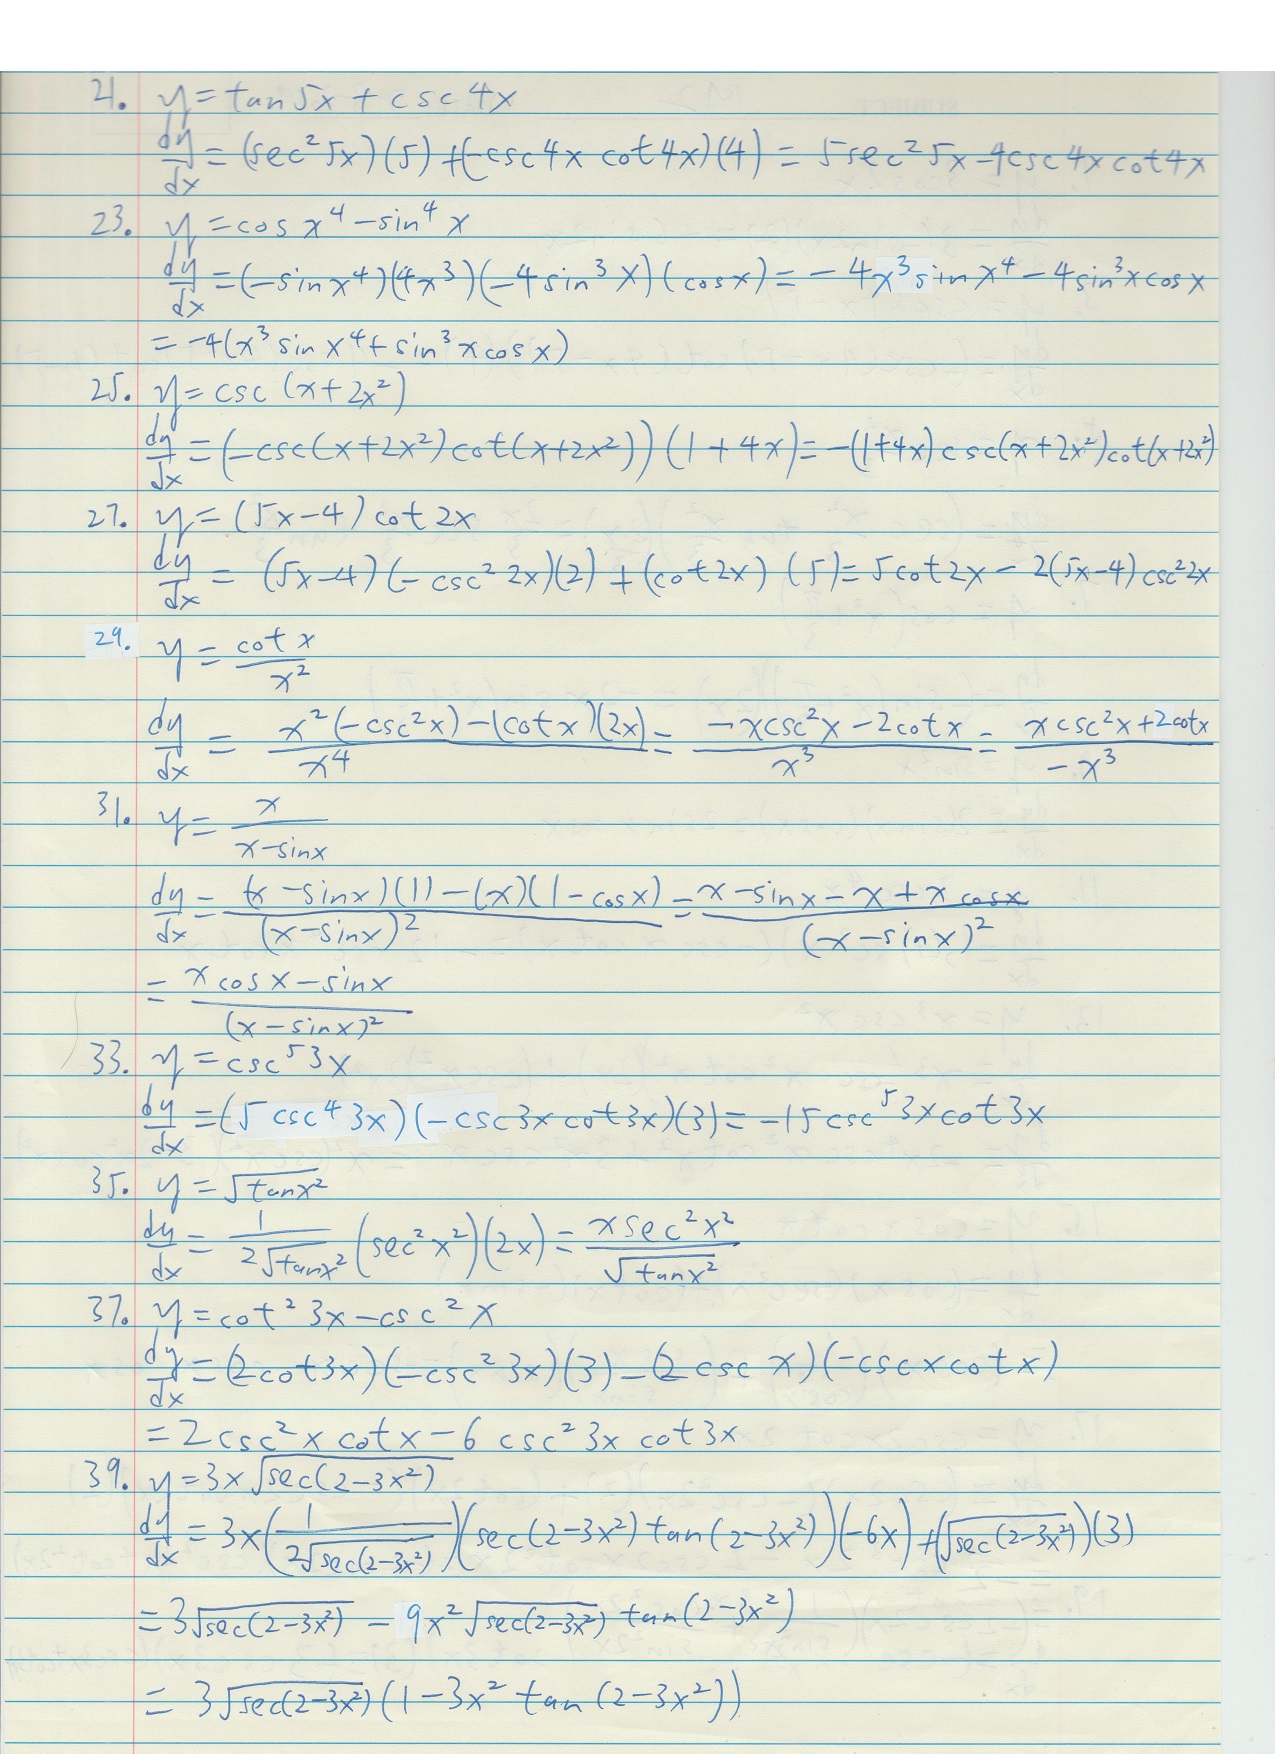 21. y = tan 5x + csc 4x
dy/dx = (sec² 5x)(5) + (-csc 4x cot 4x)(4) = 5 sec² 5x - 4 csc 4x cot 4x
23. y = cos x⁴ - sin⁴ x
dy/dx = (-sin x⁴)(4x³)(-4 sin³ x)(cos x) = -4x³ sin x⁴ - 4 sin³ x cos x
= -4(x³ sin x⁴ + sin³ x cos x)
25. y = csc (x + 2x²)
dy/dx = (-csc(x + 2x²) cot(x + 2x²))(1 + 4x) = -(1+4x) csc(x + 2x²) cot(x + 2x²)
27. y = (5x - 4) cot 2x
dy/dx = (5x - 4)(-csc² 2x)(2) + (cot 2x)(5) = 5 cot 2x - 2(5x - 4) csc² 2x
29. y = cot x / x²
dy/dx = x²(-csc² x) - (cot x)(2x) / x⁴ = -x csc² x - 2 cot x / x³ = x csc² x + 2 cot x / -x³
31. y = x / x - sin x
dy/dx = (x - sin x)(1) - (x)(1 - cos x) / (x - sin x)² = x - sin x - x + x cos x / (x - sin x)²
= x cos x - sin x / (x - sin x)²
33. y = csc⁵ 3x
dy/dx = (5 csc⁴ 3x)(-csc 3x cot 3x)(3) = -15 csc⁵ 3x cot 3x
35. y = √tan x²
dy/dx = 1 / 2√tan x² (sec² x²)(2x) = x sec² x² / √tan x²
37. y = cot² 3x - csc² x
dy/dx = (2 cot 3x)(-csc² 3x)(3) - (2 csc x)(-csc x cot x)
= 2 csc² x cot x - 6 csc² 3x cot 3x
39. y = 3x √sec(2 - 3x²)
dy/dx = 3x (1 / 2√sec(2-3x²)) (sec(2 - 3x²) tan(2 - 3x²))(-6x) + (√sec(2-3x²))(3)
= 3√sec(2-3x²) - 9x² √sec(2-3x²) tan(2-3x²)
= 3√sec(2-3x²) (1 - 3x² tan (2-3x²))